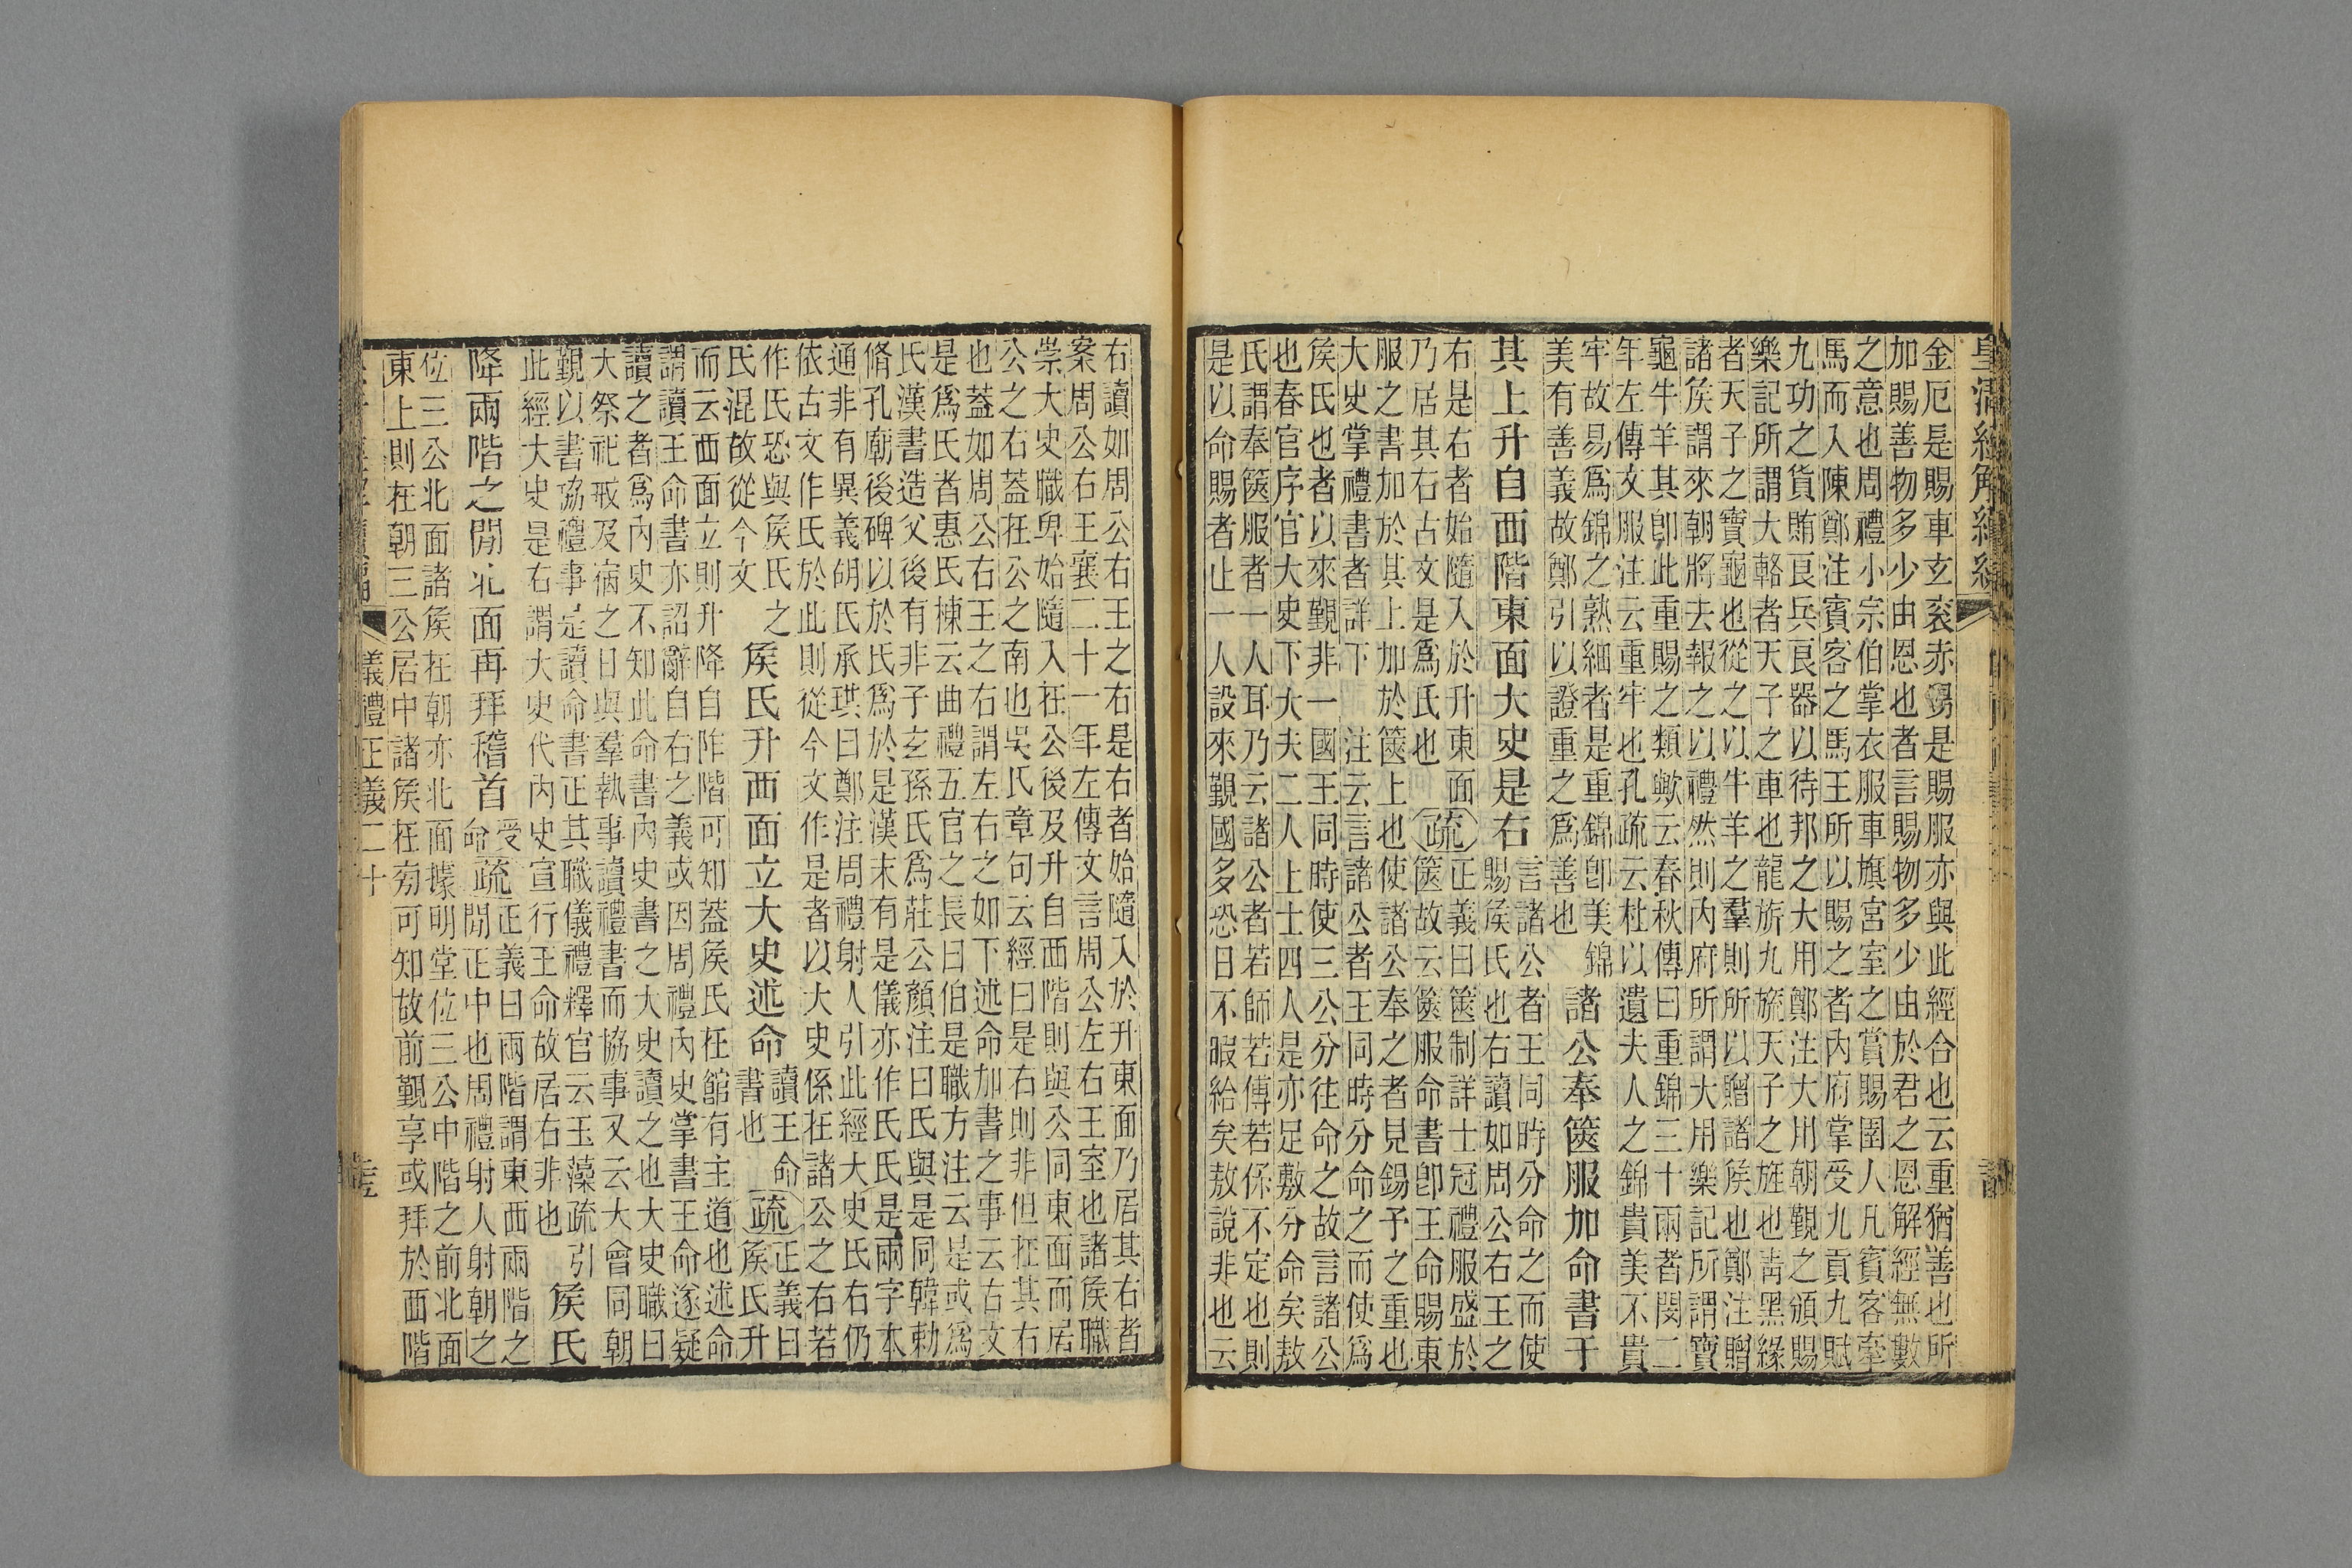 皇清經解續編
金厄是賜車玄衮赤舄是賜服亦與此經合也云重猶善也所
加賜善物多少由恩也者言賜物多少由於君之恩解經無數
之意也周禮小宗伯掌衣服車旗宮室之賞賜圉人凡賓客牽
馬而入陳鄭注賓客之馬王所以賜之者內府掌受九貢九賦
九功之貨賄良兵良器以待邦之大用鄭注大用朝覲之頒賜
樂記所謂大輅者天子之車也龍旂九旒天子之旌也靑黑緣
者天子之寶龜也從之以牛羊之羣則所以贈諸矦也鄭注贈
諸矦謂來朝將去報之以禮然則內府所謂大用樂記所謂寶
龜牛羊其卽此重賜之類歟云春秋傳曰重錦三十兩者閔二
年左傳文服注云重牢也孔疏云杜以遺夫人之錦貴美不貴
牢故易爲錦之熟細者是重錦卽美錦
美有善義故鄭引以證重之爲善也
諸公奉篋服加命書于
其上升自西階東面大史是右
言諸公者王同時分命之而使
賜矦氏也右讀如周公右王之
右是右者始隨入於升東面
乃居其右古文是爲氏也
疏
正義曰篋制詳士冠禮服盛於
篋故云篋服命書卽王命賜東
服之書加於其上加於篋上也使諸公奉之者見錫予之重也
大史掌禮書者詳下 注云言諸公者王同時分命之而使爲
矦氏也者以來覲非一國王同時使三公分往命之故言諸公
也春官序官大史下大夫二人上士四人是亦足敷分命矣敖
氏謂奉篋服者一人耳乃云諸公者若師若傅若保不定也則
是以命賜者止一人設來覲國多恐日不暇給矣敖說非也云
右讀如周公右王之右是右者始隨入於升東面乃居其右者
案周公右王襄二十一年左傳文言周公左右王室也諸矦職
崇大史職卑始隨入在公後及升自西階則與公同東面而居
公之右蓋在公之南也吳氏章句云經曰是右則非但在其右
也蓋如周公右王之右謂左右之如下述命加書之事云古文
是爲氏者惠氏棟云曲禮五官之長曰伯是職方注云是或爲
氏漢書造父後有非子玄孫氏爲莊公顏注曰氏與是同韓勅
脩孔廟後碑以於氏爲於是漢末有是儀亦作氏氏是兩字本
通非有異義胡氏承珙曰鄭注周禮射人引此經大史氏右仍
依古文作氏於此則從今文作是者以大史係在諸公之右若
作氏恐與矦氏之
氏混故從今文
矦氏升西面立大史述命
讀王命
書也
疏
正義曰
矦氏升
而云西面立則升降自阼階可知蓋矦氏在館有主道也述命
謂讀王命書亦詔辭自右之義或因周禮內史掌書王命遂疑
讀之者爲內史不知此命書內史書之大史讀之也大史職曰
大祭祀戒及宿之日與羣執事讀禮書而協事又云大會同朝
覲以書協禮事是讀命書正其職儀禮釋官云玉藻疏引
此經大史是右謂大史代內史宣行王命故居右非也
矦氏
降兩階之閒北面再拜稽首
受
命
疏
正義曰兩階謂東西兩階之
閒正中也周禮射人射朝之
位三公北面諸矦在朝亦北面據明堂位三公中階之前北面
東上則在朝三公居中諸矦在旁可知故前覲享或拜於西階
儀禮正義二十